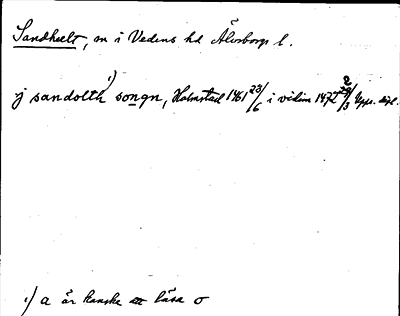 Sandhult, sn i Vedens hd Älvsborgs l.
j sandolth 1) songn, Halmstad 1461 23/6 i vidim 1472 22/3 Upps. dipl.
1) a är kanske att läsa o